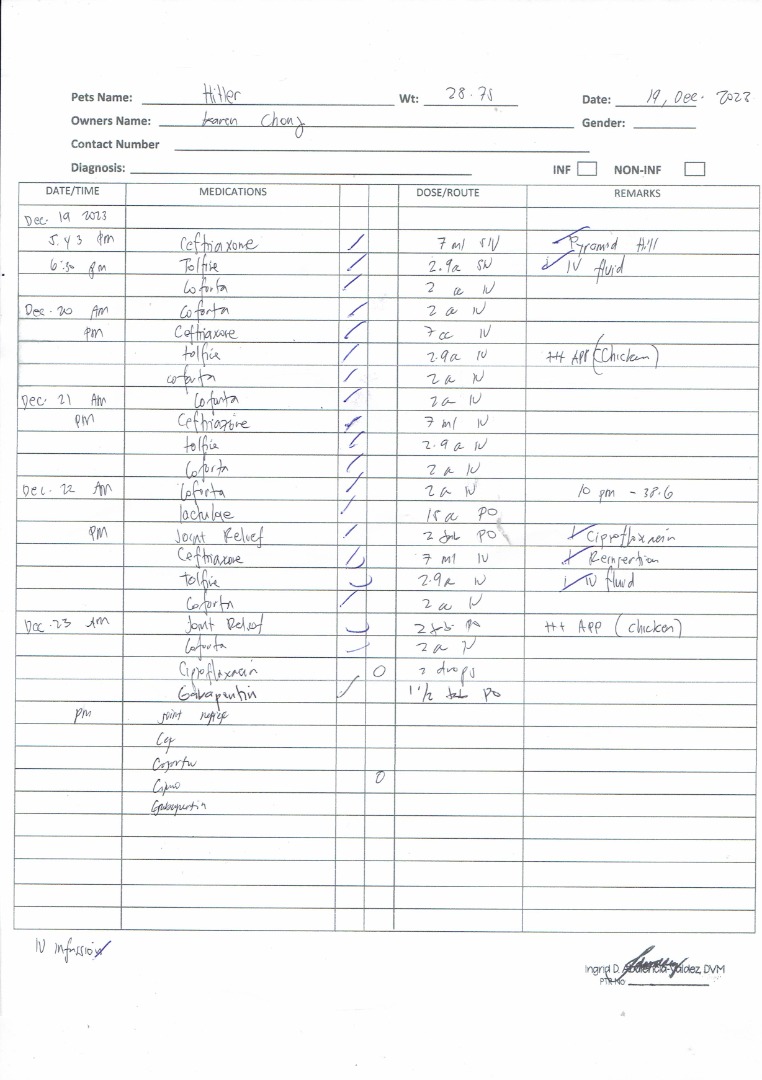 Pets Name: Hitler Wt: 28.75 Date: 19, Dec. 2023
Owners Name: Karen Chong Gender:
Contact Number
Diagnosis: INF NON-INF
DATE/TIME MEDICATIONS DOSE/ROUTE REMARKS
Dec. 19 2023
5:43 pm Ceftriaxone 7 ml SIV Pyramid Hill
6:30 pm Tolfine 2.9cc SIV IV fluid
Coforta 2 cc IV
Dec. 20 AM Coforta 2 cc IV
pm Ceftriaxone 7cc IV
tolfine 2.9cc IV +++ APP (Chicken)
coforta 2cc IV
Dec. 21 AM Coforta 2cc IV
PM Ceftriaxone 7 ml IV
tolfine 2.9 cc IV
Coforta 2 cc IV
Dec. 22 AM Coforta 2cc IV 10 pm - 38.6
lactulose 15cc PO
PM Joint Relief 2 PO Ciprofloxacin
Ceftriaxone 7 ml IV Reinsertion
tolfine 2.9cc IV IV fluid
Coforta 2 cc IV
Dec. 23 AM Joint Relief 2 +++ APP (chicken)
Coforta 2cc IV
Ciprofloxacin 0 2 drops
Gabapentin 1 1/2 tab PO
pm joint
Cef
Coforta
Cipro 0
Gabapentin
IV
Ingrid D. DVM
PTR No